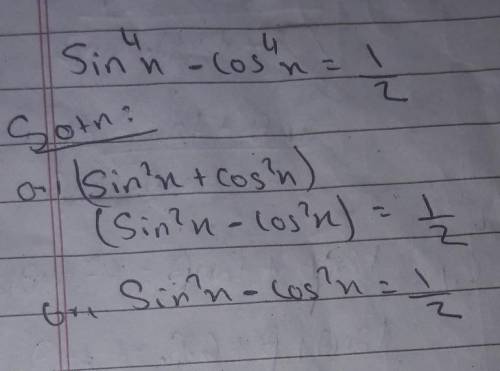 Sin⁴x - cos⁴x = 1/2
Sotn:
or, (Sin²x + cos²x)
(Sin²x - cos²x) = 1/2
or, Sin²x - cos²x = 1/2